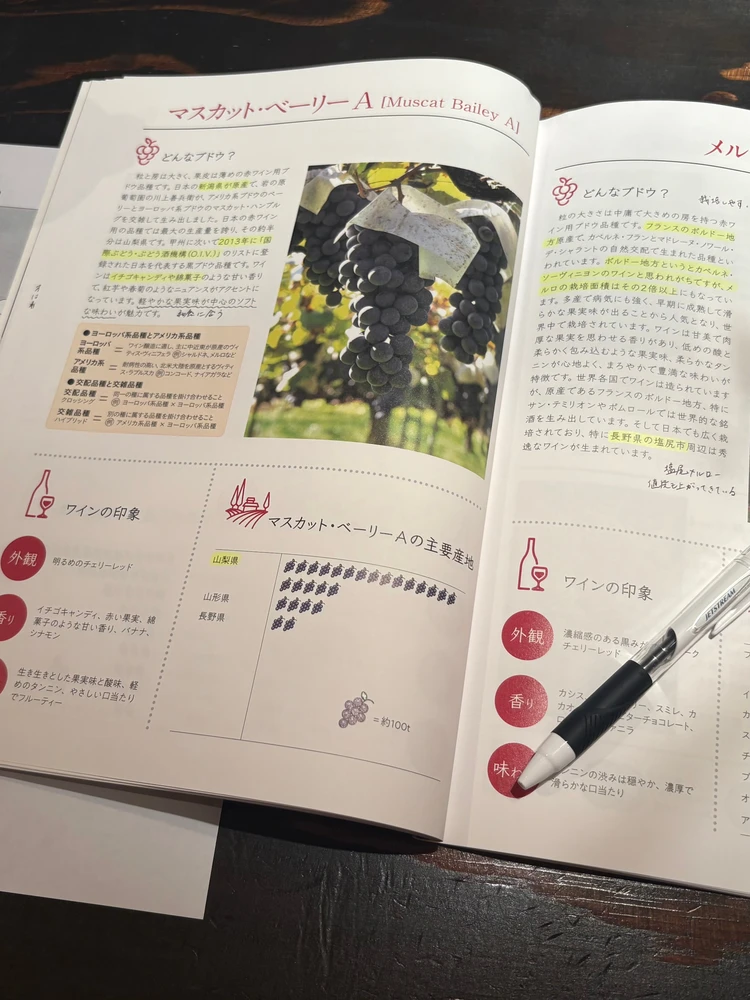 マスカット・ベーリーA [Muscat Bailey A]
どんなブドウ？
粒と房は大きく、果皮は薄めの赤ワイン用ブ
ドウ品種です。日本の新潟県が原産で、岩の原
葡萄園の川上善兵衛が、アメリカ系ブドウのベー
リーとヨーロッパ系ブドウのマスカット・ハンブル
グを交雑して生み出しました。日本の赤ワイン
用の品種では最大の生産量を誇り、その約半
分は山梨県です。甲州に次いで2013年に「国
際ぶどう・ぶどう酒機構(O.I.V.)」のリストに登
録された日本を代表する黒ブドウ品種です。ワイ
ンはイチゴキャンディや綿菓子のような甘い香り
で、紅芋や春菊のようなニュアンスがアクセントに
なっています。軽やかな果実味が中心のソフト
な味わいが魅力です。
● ヨーロッパ系品種とアメリカ系品種
ヨーロッパ系品種 = ワイン醸造に適し、主に中近東が原産のヴィ
ティス・ヴィニフェラ 例シャルドネ、メルロなど
アメリカ系品種 = 耐病性の高い、北米大陸を原産とするヴィティ
ス・ラブルスカ 例コンコード、ナイアガラなど
● 交配品種と交雑品種
交配品種 クロッシング = 同一の種に属する品種を掛け合わせること
例 ヨーロッパ系品種×ヨーロッパ系品種
交雑品種 ハイブリッド = 別の種に属する品種を掛け合わせること
例 アメリカ系品種×ヨーロッパ系品種
ワインの印象
外観
明るめのチェリーレッド
香り
イチゴキャンディ、赤い果実、綿
菓子のような甘い香り、バナナ、
シナモン
生き生きとした果実味と酸味、軽
めのタンニン、やさしい口当たり
でフルーティー
マスカット・ベーリーAの主要産地
山梨県
山形県
長野県
=約100t
メル
どんなブドウ？
粒の大きさは中庸で大きめの房を持つ赤ワ
イン用ブドウ品種です。フランスのボルドー地
方原産で、カベルネ・フランとマドレーヌ・ノワール・
デ・シャラントの自然交配で生まれた品種とい
われています。ボルドー地方というとカベルネ・
ソーヴィニヨンのワインと思われがちですが、メ
ルロの栽培面積はその2倍以上にもなっていま
す。多産で病気にも強く、早期に成熟して滑
らかな果実味が出ることから人気となり、世
界中で栽培されています。ワインは甘美で肉
厚な果実を思わせる香りがあり、低めの酸と
柔らかく包み込むような果実味、柔らかなタン
ニンが心地よく、まろやかで豊満な味わいが
特徴です。世界各国でワインは造られています
が、原産であるフランスのボルドー地方、特に
サン・テミリオンやポムロールでは世界的な銘
酒を生み出しています。そして日本でも広く栽
培されており、特に長野県の塩尻市周辺は秀
逸なワインが生まれています。
塩尻メルロー
値段も上がってきている
ワインの印象
外観
濃縮感のある黒み
チェリーレッド
香り
カシス
スミレ、カ
カオ
ターチョコレート、
味わ
ンニンの渋みは穏やか、濃厚で
滑らかな口当たり
JETSTREAM